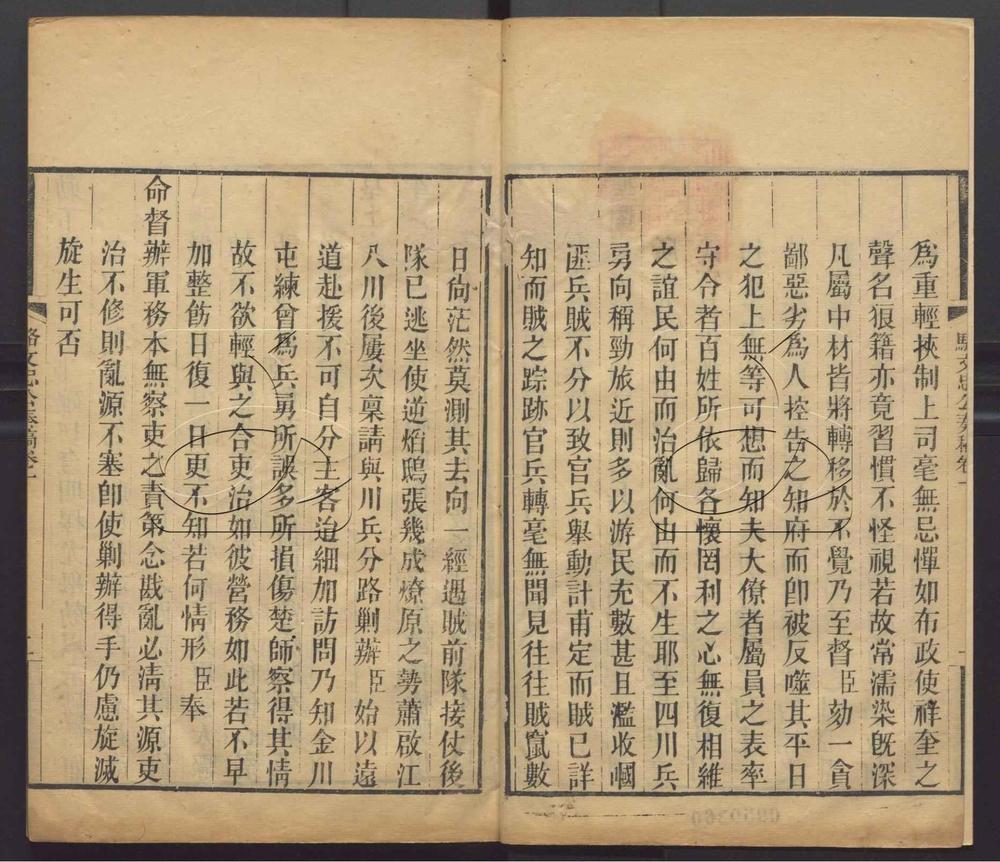 為重輕挾制上司毫無忌憚如布政使祥奎之
聲名狼籍亦竟習慣不怪視若故常濡染旣深
凡屬中材皆將轉移於不覺乃至督臣劾一貪
鄙惡劣爲人控告之知府而卽被反噬其平日
之犯上無等可想而知夫大僚者屬員之表率
守令者百姓所依歸各懷罔利之心無復相維
之誼民何由而治亂何由而不生耶至四川兵
勇向稱勁旅近則多以游民充數甚且濫收嘓
匪兵賊不分以致官兵舉動計甫定而賊已詳
知而賊之踪跡官兵轉毫無聞見往往賊竄數
日尙茫然莫測其去向一經遇賊前隊接仗後
隊已逃坐使逆焰鴟張幾成燎原之勢蕭啟江
入川後屢次稟請與川兵分路剿辦臣始以遠
道赴援不可自分主客迨細加訪問乃知金川
屯練曾爲兵勇所誤多所損傷楚師察得其情
故不欲輕與之合吏治如彼營務如此若不早
加整飭日復一日更不知若何情形臣奉
命督辦軍務本無察吏之責第念戡亂必淸其源吏
治不修則亂源不塞卽使剿辦得手仍慮旋滅
旋生可否
駱文忠公奏稿卷一